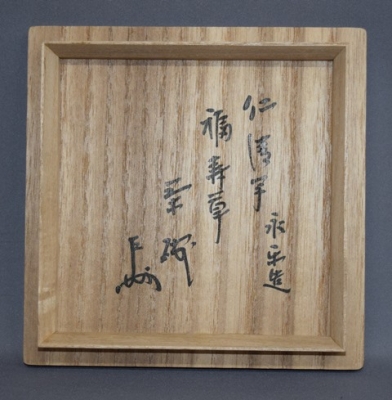 仁清写
永楽造
福寿草
茶碗